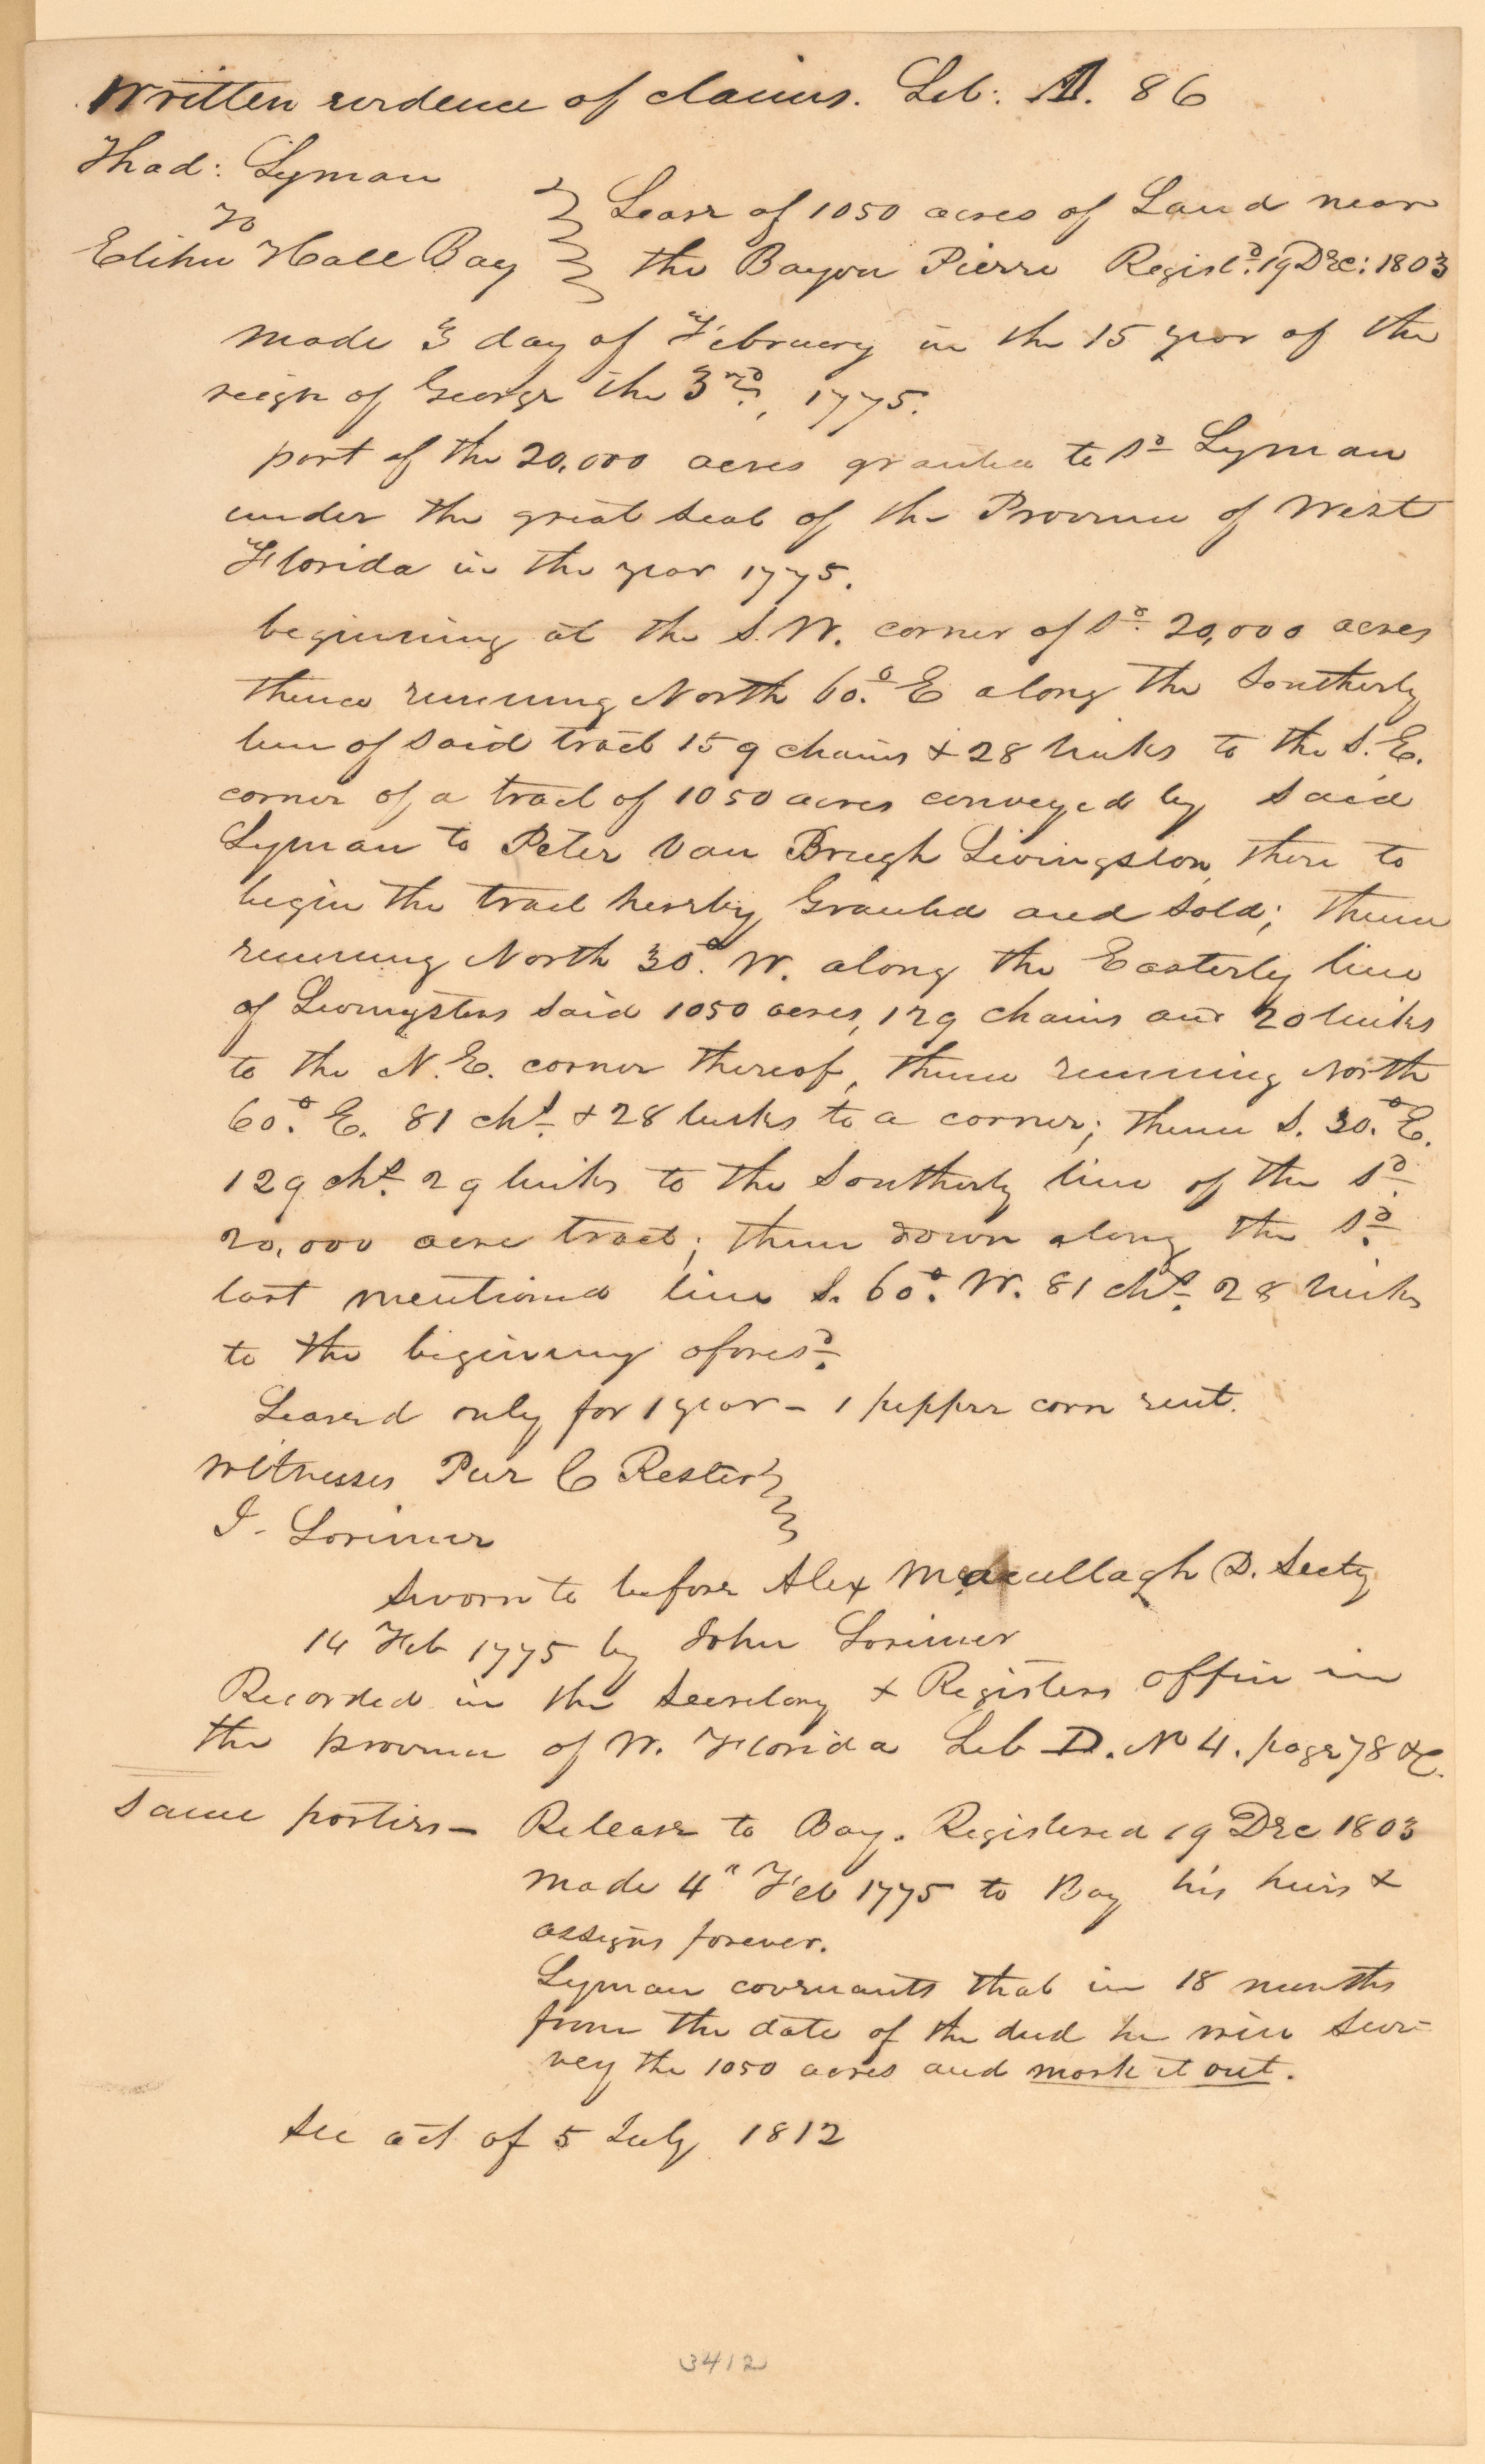 Written evidence of claims. Lib: A. 86
Thad: Lyman
to
Elihu Hall Bay
Lease of 1050 acres of Land near
the Bayou Pierre Regist.d 19 Dec: 1803
made 3 day of February in the 15 year of the
reign of George the 3rd, 1775.
part of the 20,000 acres granted to sd Lyman
under the great seal of the Province of West
Florida in the year 1775.
beginning at the S.W. corner of sd. 20,000 acres
thence running North 60.° E along the Southerly
line of said tract 159 chains & 28 links to the S.E.
corner of a tract of 1050 acres conveyed by said
Lyman to Peter Van Brugh Livingston, there to
begin the tract hereby Granted and sold; thence
running North 30.° W. along the Easterly line
of Livingstons said 1050 acres, 129 chains and 20 links
to the N.E. corner thereof, thence running North
60.° E. 81 chs & 28 links to a corner; thence S. 30.° E.
129 chs. 29 links to the Southerly line of the sd.
20,000 acre tract; thence down along the sd.
last mentioned line S. 60.° W. 81 chs. 28 links
to the beginning aforesd.
Leased only for 1 year - 1 pepper corn rent.
Witnesses Pur C Rester
J. Lorimer
Sworn to before Alex Macullagh D. Secty
14 Feb 1775 by John Lorimer
Recorded in the Secretary & Registers office in
the province of W. Florida Lib D. No 4. page 78 &c.
Same parties - Release to Bay. Registered 19 Dec 1803
made 4" Feb 1775 to Bay his heirs &
assigns forever.
Lyman covenants that in 18 months
from the date of the deed he will sur-
vey the 1050 acres and mark it out.
See act of 5 July 1812
3412